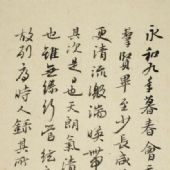 永和九年暮春會
羣賢畢至少長咸
更清流激湍暎帶
其次是日也天朗氣清
也雖無絲竹管弦
故列序時人錄其所